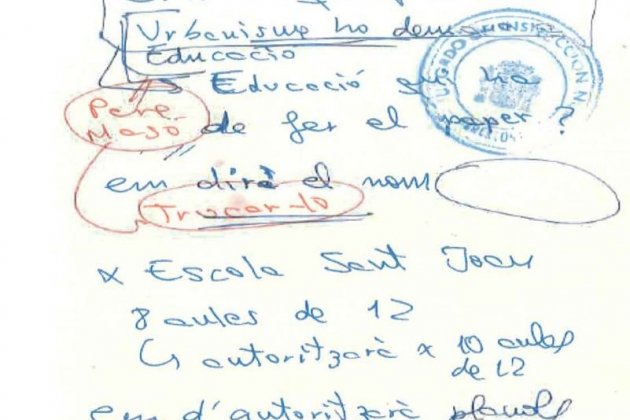 Urbanisme ho demana
Educació
Educació qui ho
Pere
Masó
de fer el paper?
em dirà el nom
Trucar-lo
x Escola Sant Joan
8 aules de 12
autoritzarà x 10 aules
de 12
em d'autoritzarà